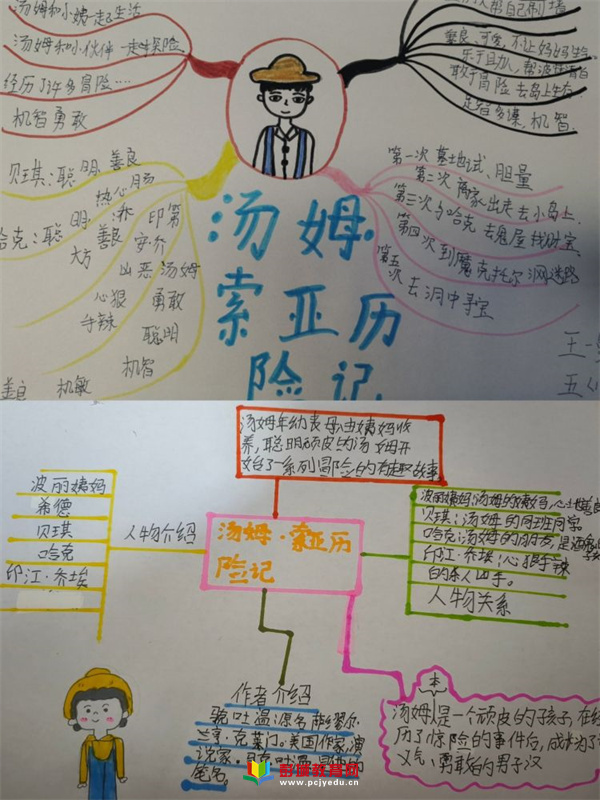 汤姆和小姨一起生活
汤姆和小伙伴一起去冒险
经历了许多冒险……
机智勇敢
善良、可爱、不让妈妈生
乐于助人，帮
敢于冒险 去岛上生存
足智多谋，机智
贝琪：聪明、善良
热心肠
哈克：聪明
善良
大方
印第
安·乔
凶恶
心狠
手辣
汤姆
勇敢
聪明
机智
机敏
善良
第一次墓地试、胆量
第二次离家出走去小岛上
第三次与哈克去鬼屋找财宝
第四次到魔克托尔洞迷路
第五次去洞中寻宝
汤姆·
索亚历
险记
王一
五
汤姆年幼丧母,由姨妈收
养,聪明顽皮的汤姆开
始了一系列冒险的有趣故事
波丽姨妈
希德
贝琪
哈克
印江·乔埃
人物介绍
汤姆·索亚历
险记
波丽姨妈:汤姆的姨妈,心地善良
贝琪:汤姆的同班同学
哈克:汤姆的朋友,是
印江·乔埃:心狠手辣
的杀人凶手。
人物关系
作者介绍
兰亨·克莱门。美国作家,演
说家
笔名。
本
汤姆是一个顽皮的孩子,在经
历了惊险的事件后,成长为了
义气、勇敢的男子汉
www.pcjyedu.cn